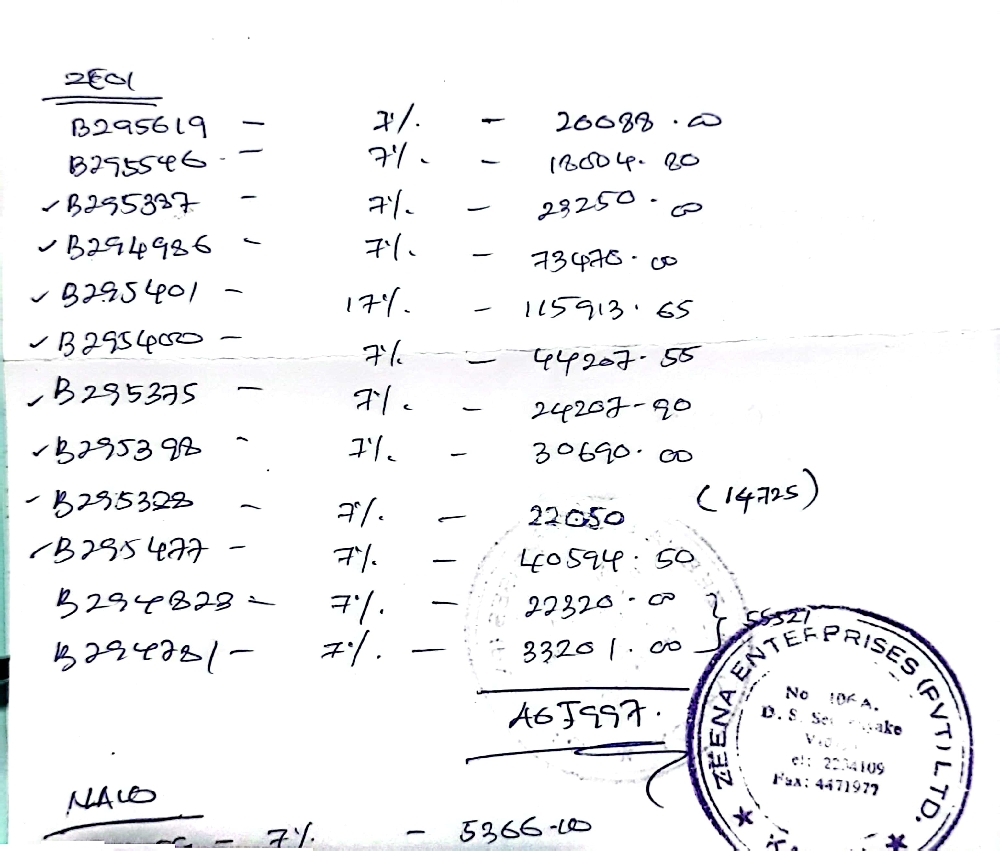 ZE01
B295619 - 7% - 20088.00
B295546 - 7% - 18004.80
✓ B295337 - 7% - 23250.00
✓ B294986 - 7% - 73470.00
✓ B295401 - 17% - 115913.65
✓ B295400 - 7% - 44207.55
✓ B295375 - 7% - 24207-90
✓ B295398 - 7% - 30690.00
✓ B295328 - 7% - 22050 (14725)
✓ B295477 - 7% - 40594.50
B294828 - 7% - 22320.00
B294281 - 7% - 33201.00 } 55521
7% - 5366-00
★ ZEENA ENTERPRISES (PVT) LTD. ★
No 106 A.
D. S.
2234109
Fax: 4471977